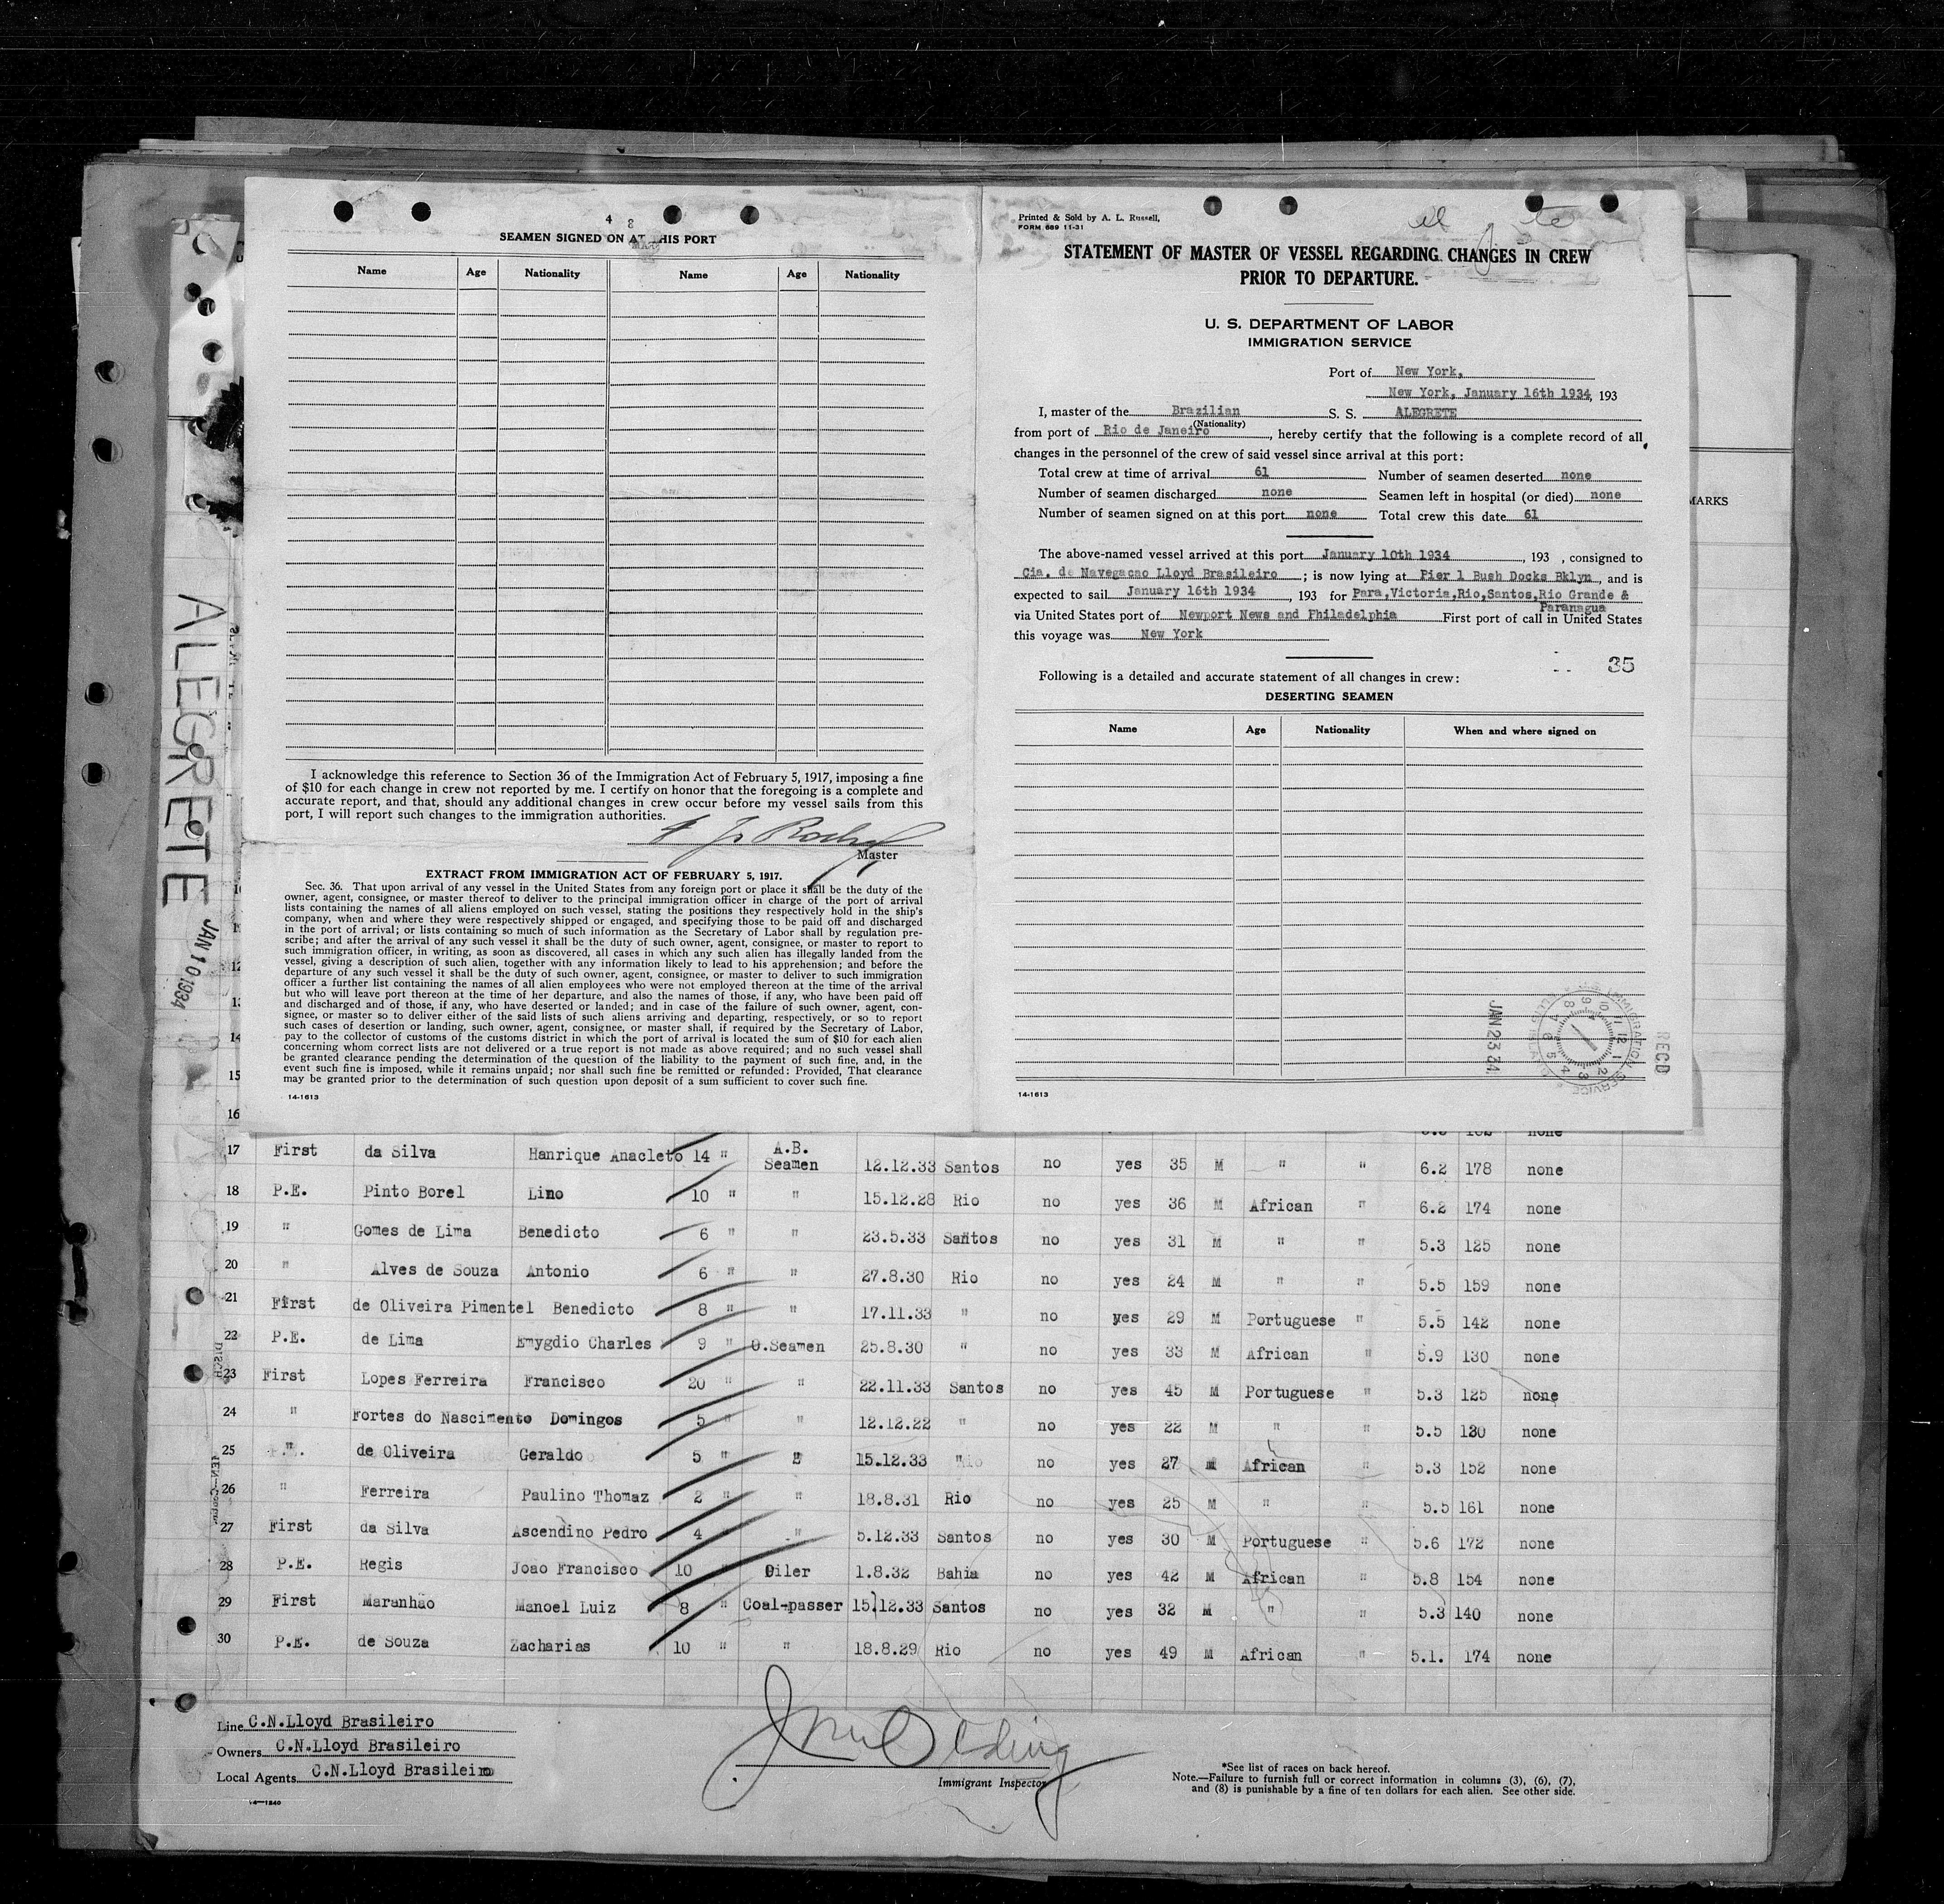 4 8
SEAMEN SIGNED ON AT THIS PORT
Name Age Nationality Name Age Nationality
I acknowledge this reference to Section 36 of the Immigration Act of February 5, 1917, imposing a fine
of $10 for each change in crew not reported by me. I certify on honor that the foregoing is a complete and
accurate report, and that, should any additional changes in crew occur before my vessel sails from this
port, I will report such changes to the immigration authorities.
Master
EXTRACT FROM IMMIGRATION ACT OF FEBRUARY 5, 1917.
Sec. 36. That upon arrival of any vessel in the United States from any foreign port or place it shall be the duty of the
owner, agent, consignee, or master thereof to deliver to the principal immigration officer in charge of the port of arrival
lists containing the names of all aliens employed on such vessel, stating the positions they respectively hold in the ship's
company, when and where they were respectively shipped or engaged, and specifying those to be paid off and discharged
in the port of arrival; or lists containing so much of such information as the Secretary of Labor shall by regulation pre-
scribe; and after the arrival of any such vessel it shall be the duty of such owner, agent, consignee, or master to report to
such immigration officer, in writing, as soon as discovered, all cases in which any such alien has illegally landed from the
vessel, giving a description of such alien, together with any information likely to lead to his apprehension; and before the
departure of any such vessel it shall be the duty of such owner, agent, consignee, or master to deliver to such immigration
officer a further list containing the names of all alien employees who were not employed thereon at the time of the arrival
but who will leave port thereon at the time of her departure, and also the names of those, if any, who have been paid off
and discharged and of those, if any, who have deserted or landed; and in case of the failure of such owner, agent, con-
signee, or master so to deliver either of the said lists of such aliens arriving and departing, respectively, or so to report
such cases of desertion or landing, such owner, agent, consignee, or master shall, if required by the Secretary of Labor,
pay to the collector of customs of the customs district in which the port of arrival is located the sum of $10 for each alien
concerning whom correct lists are not delivered or a true report is not made as above required; and no such vessel shall
be granted clearance pending the determination of the question of the liability to the payment of such fine, and, in the
event such fine is imposed, while it remains unpaid; nor shall such fine be remitted or refunded: Provided, That clearance
may be granted prior to the determination of such question upon deposit of a sum sufficient to cover such fine.
14-1613
Printed & Sold by A. L. Russell,
FORM 689 11-31
STATEMENT OF MASTER OF VESSEL REGARDING CHANGES IN CREW
PRIOR TO DEPARTURE.
U. S. DEPARTMENT OF LABOR
IMMIGRATION SERVICE
Port of New York,
New York, January 16th 1934, 193
I, master of the Brazilian S. S. ALEGRETE
(Nationality)
from port of Rio de Janeiro, hereby certify that the following is a complete record of all
changes in the personnel of the crew of said vessel since arrival at this port:
Total crew at time of arrival 61 Number of seamen deserted none
Number of seamen discharged none Seamen left in hospital (or died) none
Number of seamen signed on at this port none Total crew this date 61
The above-named vessel arrived at this port January 10th 1934, 193 , consigned to
Cia. de Navegacao Lloyd Brasileiro; is now lying at Pier 1 Bush Docks Bklyn, and is
expected to sail January 16th 1934, 193 for Para,Victoria,Rio,Santos,Rio Grande &
Paranagua
via United States port of Newport News and Philadelphia First port of call in United States
this voyage was New York
35
Following is a detailed and accurate statement of all changes in crew:
DESERTING SEAMEN
Name Age Nationality When and where signed on
JAN 23 34
RECD
14-1613
MARKS
ALEGRETE
JAN 10 1934
12
14
15
16
17 First da Silva Hanrique Anacleto 14 " A.B. Seamen 12.12.33 Santos no yes 35 M " " 6.2 178 none
18 P.E. Pinto Borel Lino 10 " " 15.12.28 Rio no yes 36 M African " 6.2 174 none
19 " Gomes de Lima Benedicto 6 " " 23.5.33 Santos no yes 31 M " " 5.3 125 none
20 " Alves de Souza Antonio 6 " " 27.8.30 Rio no yes 24 M " " 5.5 159 none
21 First de Oliveira Pimentel Benedicto 8 " " 17.11.33 " no yes 29 M Portuguese " 5.5 142 none
22 P.E. de Lima Emygdio Charles 9 " O.Seamen 25.8.30 " no yes 33 M African " 5.9 130 none
23 First Lopes Ferreira Francisco 20 " " 22.11.33 Santos no yes 45 M Portuguese " 5.3 125 none
24 " Fortes do Nascimento Domingos 5 " " 12.12.22 " no yes 22 M " " 5.5 130 none
25 " de Oliveira Geraldo 5 " " 15.12.33 " no yes 27 M African " 5.3 152 none
26 " Ferreira Paulino Thomaz 2 " " 18.8.31 Rio no yes 25 M " " 5.5 161 none
27 First da Silva Ascendino Pedro 4 " " 5.12.33 Santos no yes 30 M Portuguese " 5.6 172 none
28 P.E. Regis Joao Francisco 10 " Oiler 1.8.32 Bahia no yes 42 M African " 5.8 154 none
29 First Maranhão Manoel Luiz 8 " Coal-passer 15.12.33 Santos no yes 32 M " " 5.3 140 none
30 P.E. de Souza Zacharias 10 " " 18.8.29 Rio no yes 49 M African " 5.1. 174 none
Line C.N.Lloyd Brasileiro
Owners C.N.Lloyd Brasileiro
Local Agents C.N.Lloyd Brasileiro
14—1240
Immigrant Inspector
*See list of races on back hereof.
Note.—Failure to furnish full or correct information in columns (3), (6), (7),
and (8) is punishable by a fine of ten dollars for each alien. See other side.